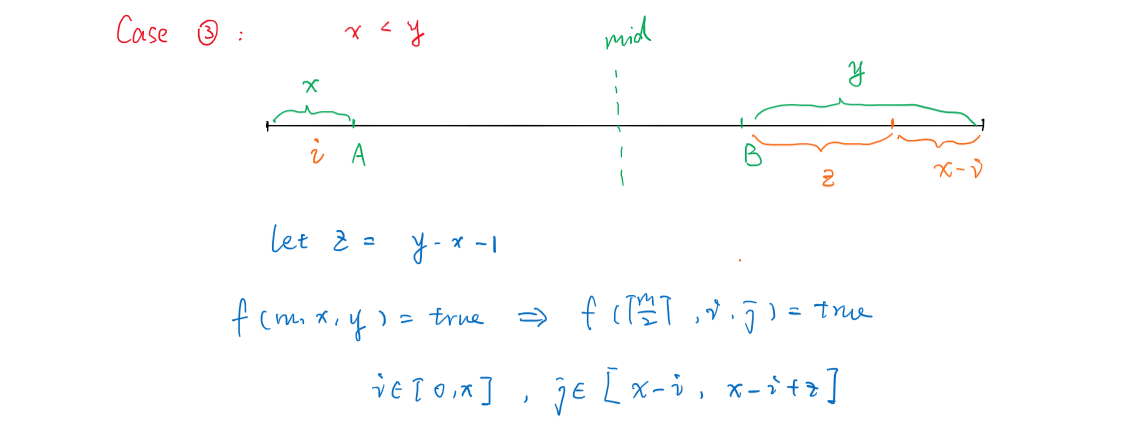 Case ③ : x < y
mid
x
y
i A
B
z
x-i
let z = y-x-1
f(m,x,y) = true ⇒ f(⌈m/2⌉,i,j) = true
i∈[0,x], j∈[x-i, x-i+z]